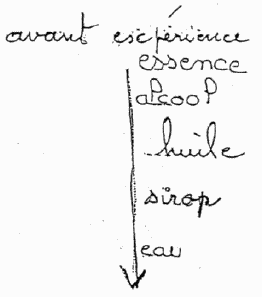 avant expérience
essence
alcool
huile
sirop
eau